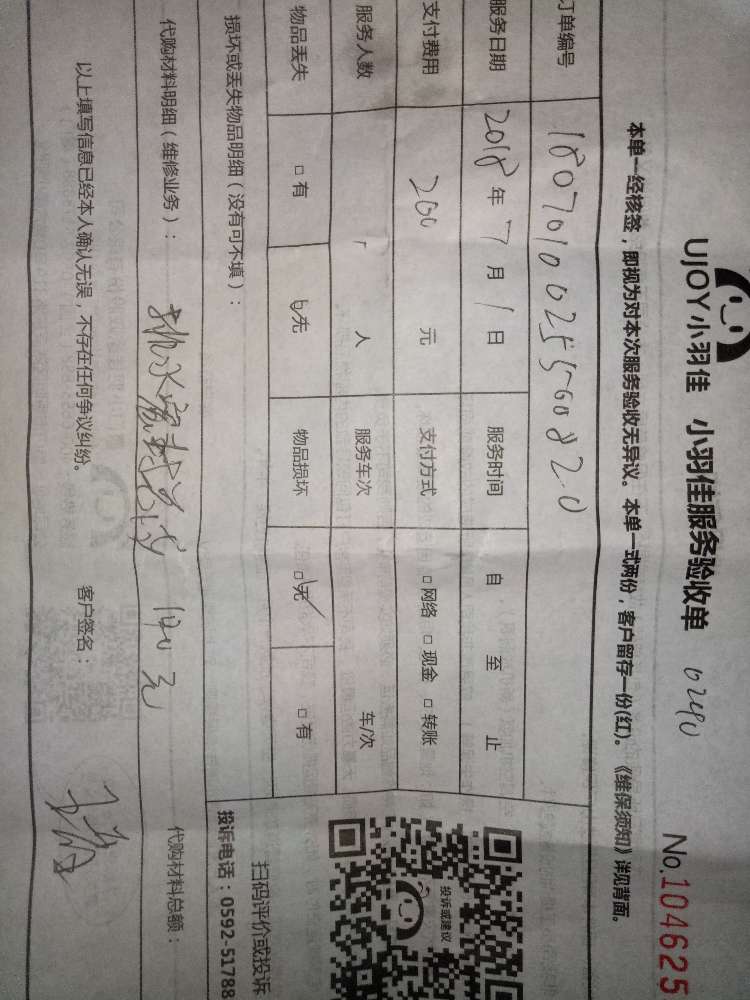 UJOY小羽佳 小羽佳服务验收单 0240
No.104625
本单一经核签，即视为对本次服务验收无异议。本单一式两份，客户留存一份(红)。《维保须知》详见背面。
订单编号 180701002550082.0
服务日期 2018年7月1日 服务时间 自 至 止
支付费用 200 元 支付方式 □网络 □现金 □转账
服务人数 1 人 服务车次 车/次
物品丢失 □有 □无 物品损坏 □无 □有
损坏或丢失物品明细（没有可不填）：
代购材料明细（维修业务）： 140元 代购材料总额：
以上填写信息已经本人确认无误，不存在任何争议纠纷。 客户签名：
投诉或建议
扫码评价或投诉
投诉电话：0592-51788